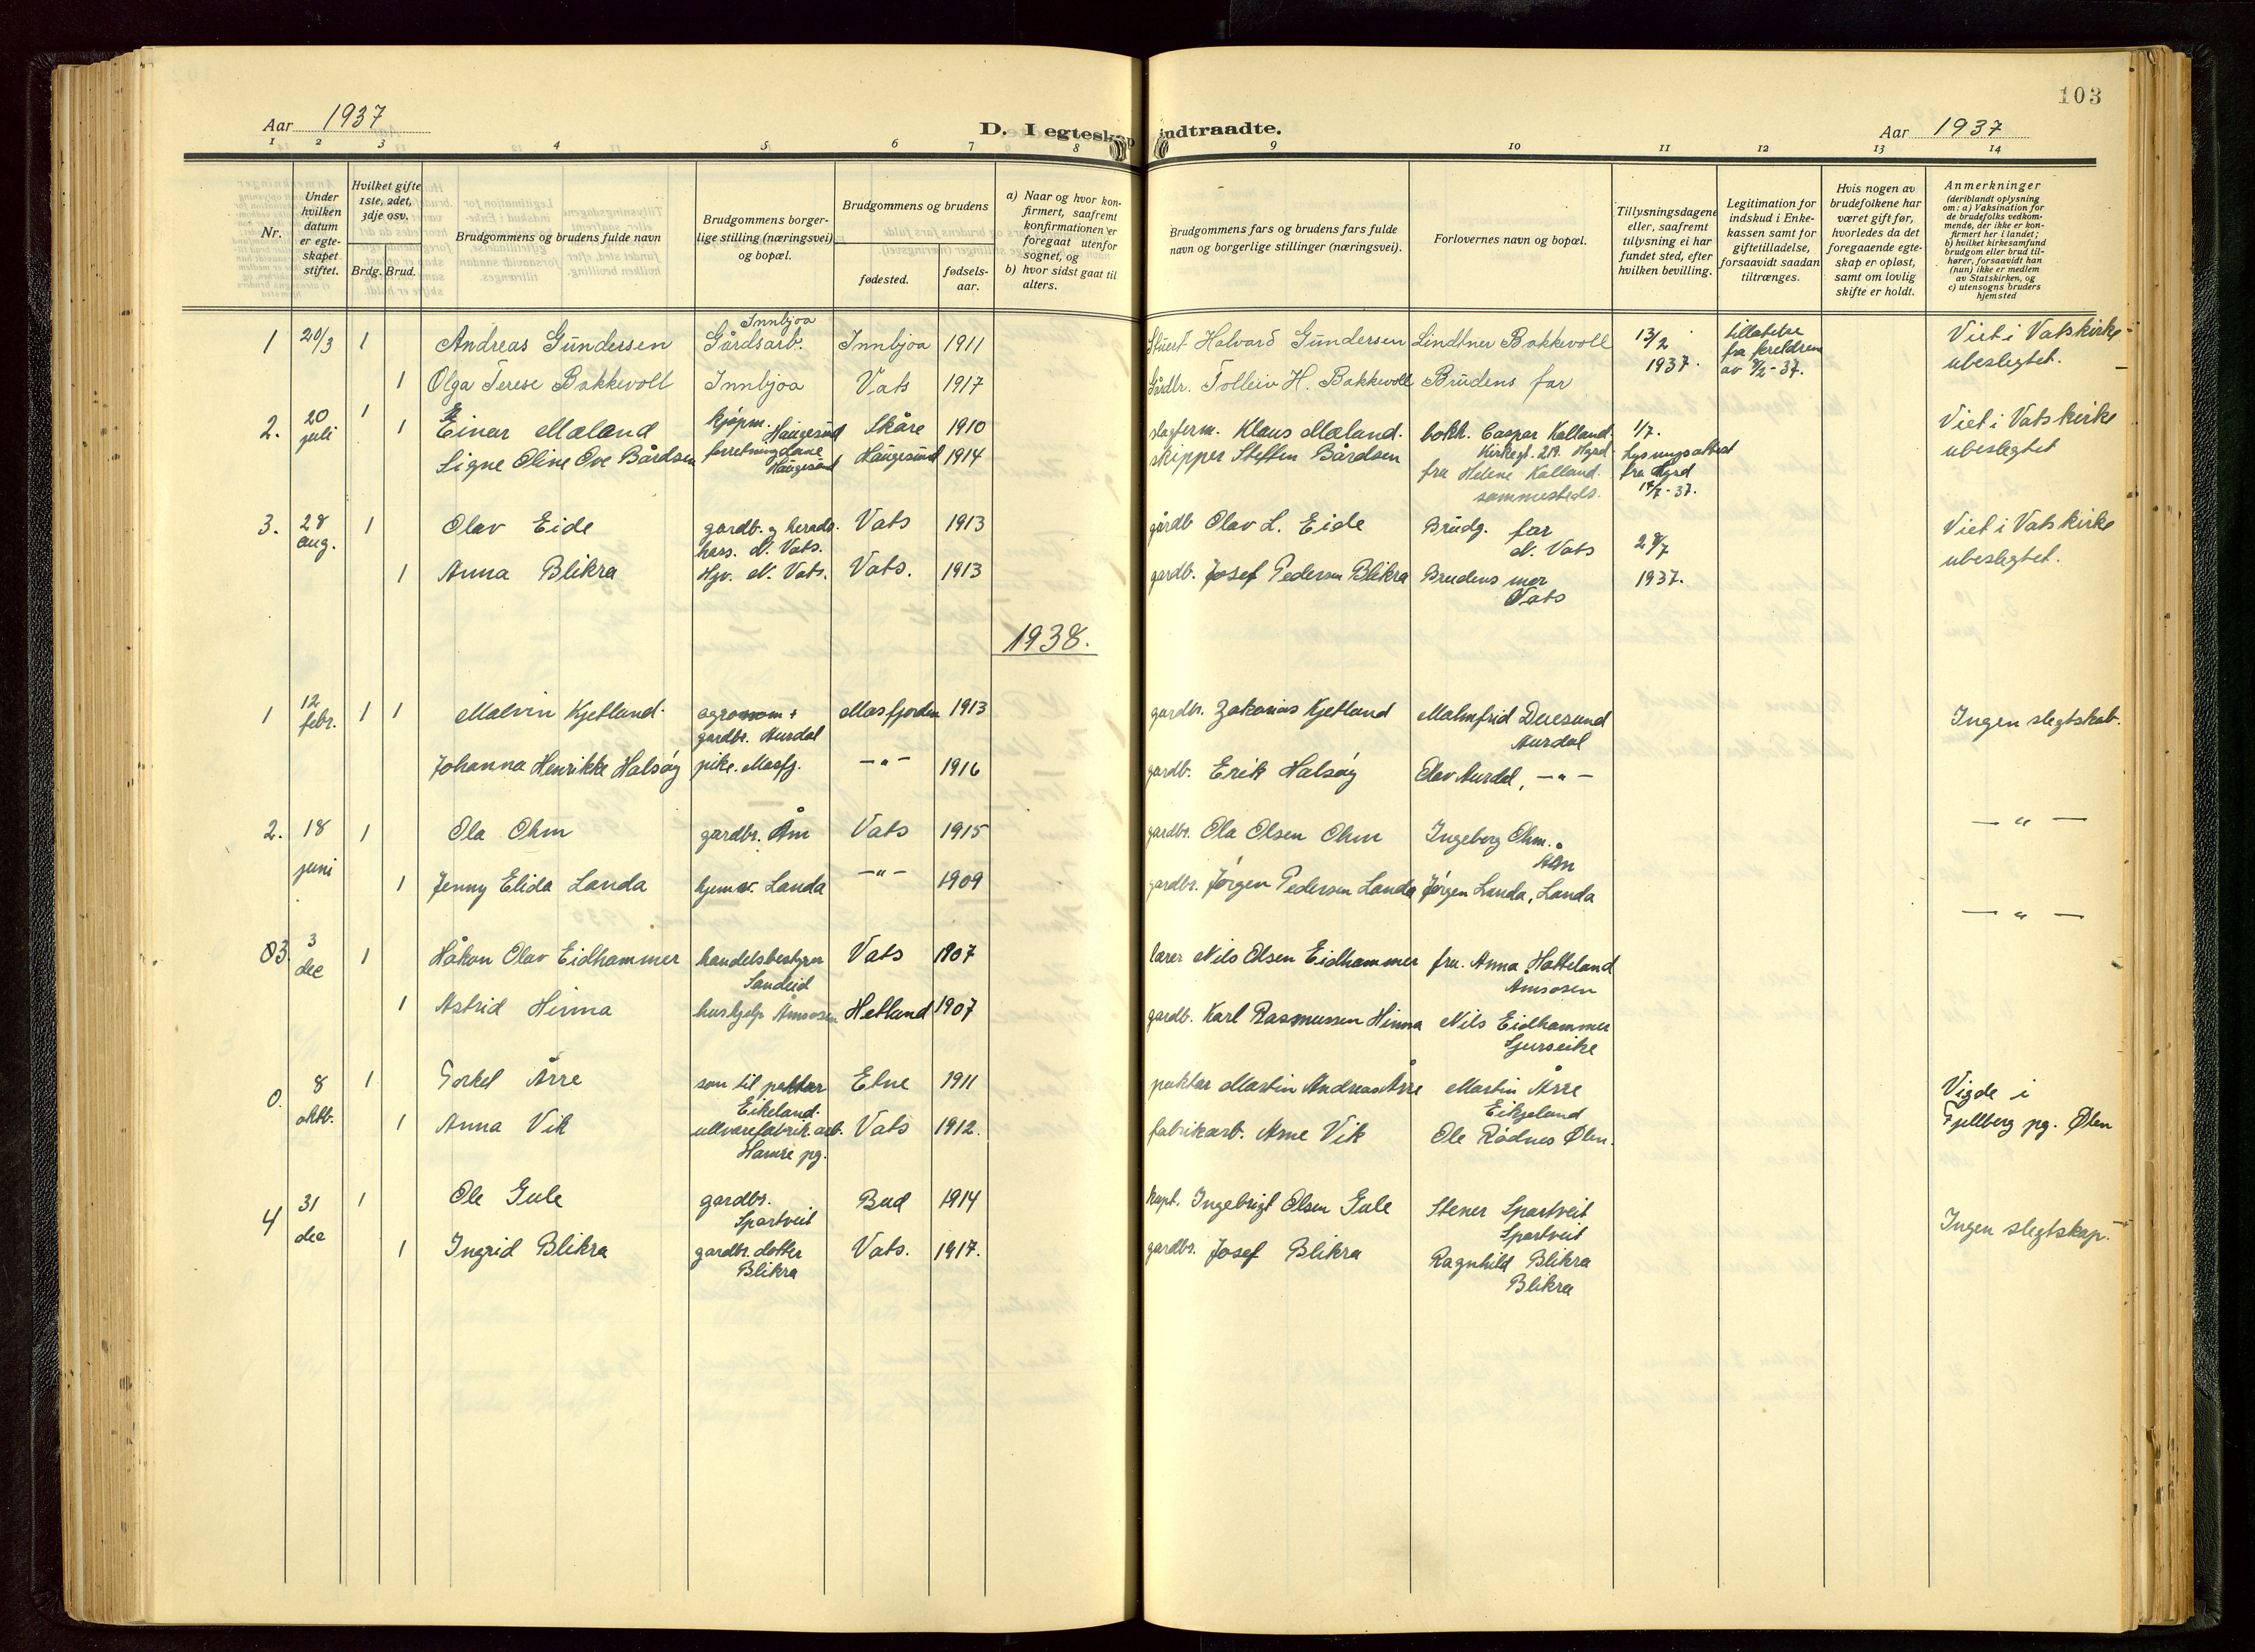 103
Aar 1937
D. I egteskap indtraadte.
Aar 1937
1 2 3 4 5 6 7 8 9 10 11 12 13 14
Nr.
Under hvilken datum er egteskapet stiftet.
Hvilket gifte 1ste, 2det, 3dje osv.
Brdg. Brud.
Brudgommens og brudens fulde navn
Brudgommens borgerlige stilling (næringsvei) og bopæl.
Brudgommens og brudens
fødested.
fødselsaar.
a) Naar og hvor konfirmert, saafremt konfirmationen er foregaat utenfor sognet, og
b) hvor sidst gaat til alters.
Brudgommens fars og brudens fars fulde navn og borgerlige stillinger (næringsvei).
Forlovernes navn og bopæl.
Tillysningsdagene eller, saafremt tillysning ei har fundet sted, efter hvilken bevilling.
Legitimation for indskud i Enkekassen samt for giftetilladelse, forsaavidt saadan tiltrænges.
Hvis nogen av brudefolkene har været gift før, hvorledes da det foregaaende egteskap er opløst, samt om lovlig skifte er holdt.
Anmerkninger (deriblandt oplysning om: a) Vaksination for de brudefolks vedkommende, der ikke er konfirmert her i landet; b) hvilket kirkesamfund brudgom eller brud tilhører, forsaavidt han (hun) ikke er medlem av Statskirken, og c) utensogns bruders hjemsted
1 20/3 1 Andreas Gundersen Gårdsarb. Innbjoa Innbjoa 1911 Halvard Gundersen Lindtner Bakkevoll 13/2 1937. tillatelse fra foreldrene av Viet i Vatskirke ubeslegtet.
1 Olga Terese Bakkevoll Innbjoa Vats 1917 Gårdbr. Tolleiv H. Bakkevoll Brudens far
2. 20 juli 1 Einar Mæland kjøpm. Haugesund Skåre 1910 Klaus Mæland. bokh. Caspar Kalland Kirkegt. 219. Hgsd. 1/7. Viet i Vatskirke ubeslegtet
1 Signe Oline Ove Bårdsen forretningsdame Haugesund Haugesund 1914 skipper Steffen Bårdsen fru Helene Kalland sammesteds. Lysningsattest fra Hgsd 17/7-37.
3. 28 aug. 1 Olav Eide gardb. og herads. kass. N. Vats. Vats 1913 gårdb Olav L. Eide Brudg. far N. Vats 28/7 1937. Viet i Vatskirke ubeslegtet.
1 Anna Blikra Hjv. N. Vats. Vats. 1913 gardb. Josef Pedersen Blikra Brudens mor Vats
1938.
1 12 febr. 1 1 Malvin Kjetland. agronom + gardbr. Aursdal Masfjorden 1913 gardbr. Zakarias Kjetland Malmfrid Duesund Aursdal Ingen slegtskab.
Johanna Henrikke Halsøy pike. Masfj. —"— 1916 gardb. Erik Halsøy Olav Aursdal, —"—
2. 18 juni 1 Ola Ohm gardbr. Åm Vats 1915 gardbr. Ola Olsen Ohm Ingeborg Ohm. Åm — " —
1 Jenny Elida Landa hjemv. Landa —"— 1909 gardbr. Jørgen Pedersen Landa Jørgen Landa, Landa
03. 3 dec 1 Håkon Olav Eidhammer handelsbestyrer Sandeid Vats 1907 lærer Nils Olsen Eidhammer fru. Anna Hatteland Amsosen — " —
1 Astrid Hinna hushjelp Åmsosen Hetland 1907 gardb. Karl Rasmussen Hinna Nils Eidhammer Sjurseike
0. 8 oktb. 1 Torkel Årre son til paktar Eikeland. Etne 1911 paktar Martin Andreas Årre Martin Årre Eikjeland Vigde i Fjellberg pg. Ølen
1 Anna Vik ullvarefabrik. arb. Hamre pg. Vats 1912. fabrikarb. Arne Vik Ole Rødnes Ølen.
4 31 dec 1 Ole Gule gardbr. Spartveit Bud 1914 kapt. Ingebrigt Olsen Gule Stener Spartveit Spartveit Ingen slegtskap.
1 Ingrid Blikra gardbr. dotter Blikra Vats. 1917. gardbr. Josef Blikra Ragnhild Blikra Blikra